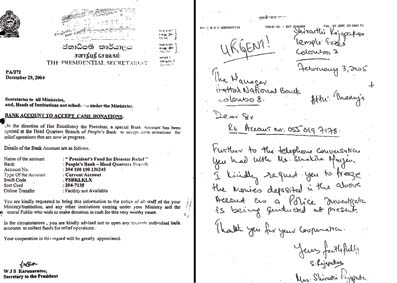 ජනාධිපති කාර්යාලය
THE PRESIDENTIAL SECRETARIAT
PA/272
December 29, 2004
Secretaries to all Ministries,
and, Heads of Institutions under the Ministries.
BANK ACCOUNT TO ACCEPT CASH DONATIONS.
On the direction of Her Excellency the President, a special Bank Account has been
opened at the Head Quarters Branch of People's Bank to accept cash donations for
relief operations that are now in progress.
Details of the Bank Account are as follows.
Name of the account : "President's Fund for Disaster Relief"
Bank : People's Bank - Head Quarters Branch
Account No. : 204 100 190 138245
Type Of the Account : Current Account
Swift Code : PSBKLKLX
Sort Code : 204-7135
Online Transfer : Facility not Available
You are kindly requested to bring this information to the notice of all staff of your
Ministry/Institution, and any other institutions coming under your Ministry and the
general Public who wish to make donation in cash for this very worthy cause.
In the circumstances, you are kindly advised not to open any separate individual bank
accounts to collect funds for relief operations.
Your cooperation in this regard will be greatly appreciated.
W J S Karunaratne,
Secretary to the President
URGENT!
Shiranthi Rajapaksa
Temple Trees
Colombo 3
February 3, 2005
The Manager
Hatton National Bank
Colombo 8.
Dear Sir
Re Account no.
Further to the telephone conversation
you had with Mr.
I kindly request you to freeze
the monies deposited in the above
Account as a Police Investigation
is being conducted at present.
Thank you for your Cooperation.
Yours faithfully
Mrs. Shiranthi Rajapaksa